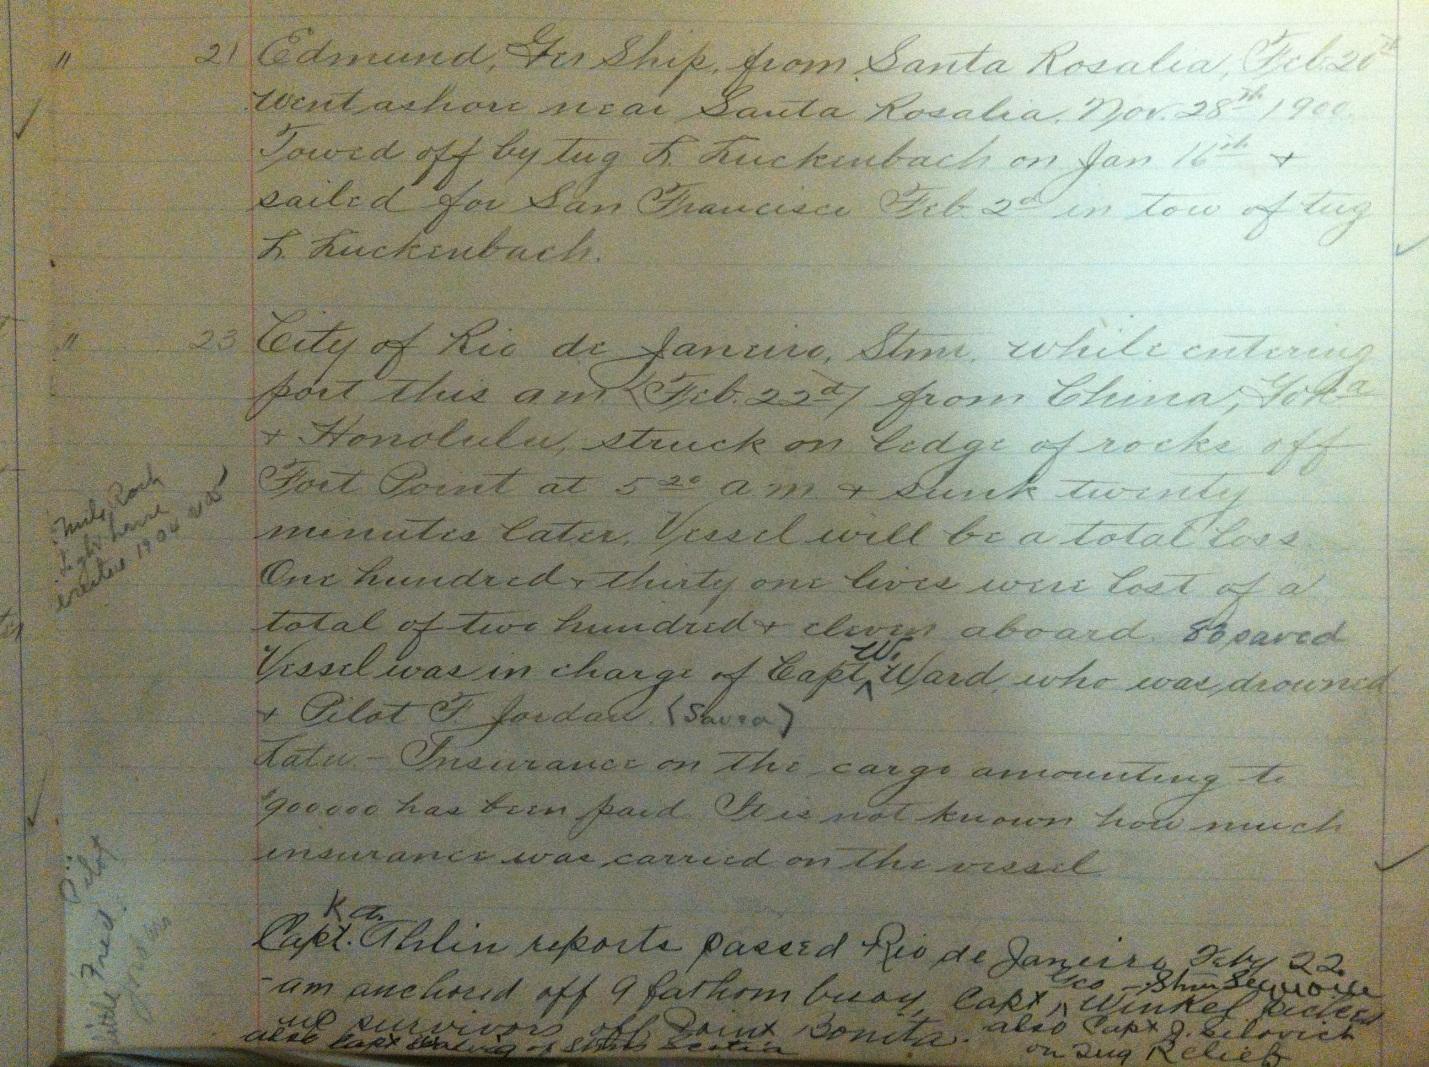 " 21 Edmund, Ger Ship, from Santa Rosalia, Feb. 20th
went ashore near Santa Rosalia, Nov. 28th 1900.
Towed off by tug L Luckenbach on Jan 16th +
sailed for San Francisco Feb. 2d in tow of tug
L Luckenbach.
" 23 City of Rio de Janeiro, Stmr. while entering
port this am (Feb. 22d) from China, Yok'a
+ Honolulu, struck on ledge of rocks off
Fort Point at 5 20 a m + sunk twenty
minutes later. Vessel will be a total loss.
One hundred + thirty one lives were lost of a
total of two hundred + eleven aboard. 80 saved
Vessel was in charge of Capt. W. Ward, who was drowned
+ Pilot F. Jordan. (Saved)
Later - Insurance on the cargo amounting to
$900000 has been paid. It is not known how much
insurance was carried on the vessel
Mile Rock
Light house
erected 1904
Pilot
Fred
Jordan
K a.
Capt. Ahlin reports passed Rio de Janeiro Feby 22
- am anchored off 9 fathom buoy, Capt Geo Winkel Stmr Sequoia picked
up survivors off Point Bonita. also Capt J. Silovich
on Tug Relief
also Capt of Stmr Scotia